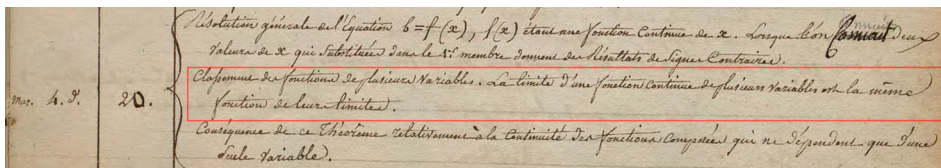 Résolution générale de l'Equation b = f(x), f(x) étant une fonction Continue de x. Lorsque l'on Connait deux
Valeurs de x qui substituées dans le 1er membre donnent des Résultats de Signes Contraires.
Classement des fonctions de plusieurs Variables. La limite d'une fonction continue de plusieurs variables est la même
Mar. 4. d. 20. fonction de leurs limites.
Conséquences de ce Théorème relativement à la Continuité des fonctions Composées qui ne dépendent que d'une
Seule Variable.